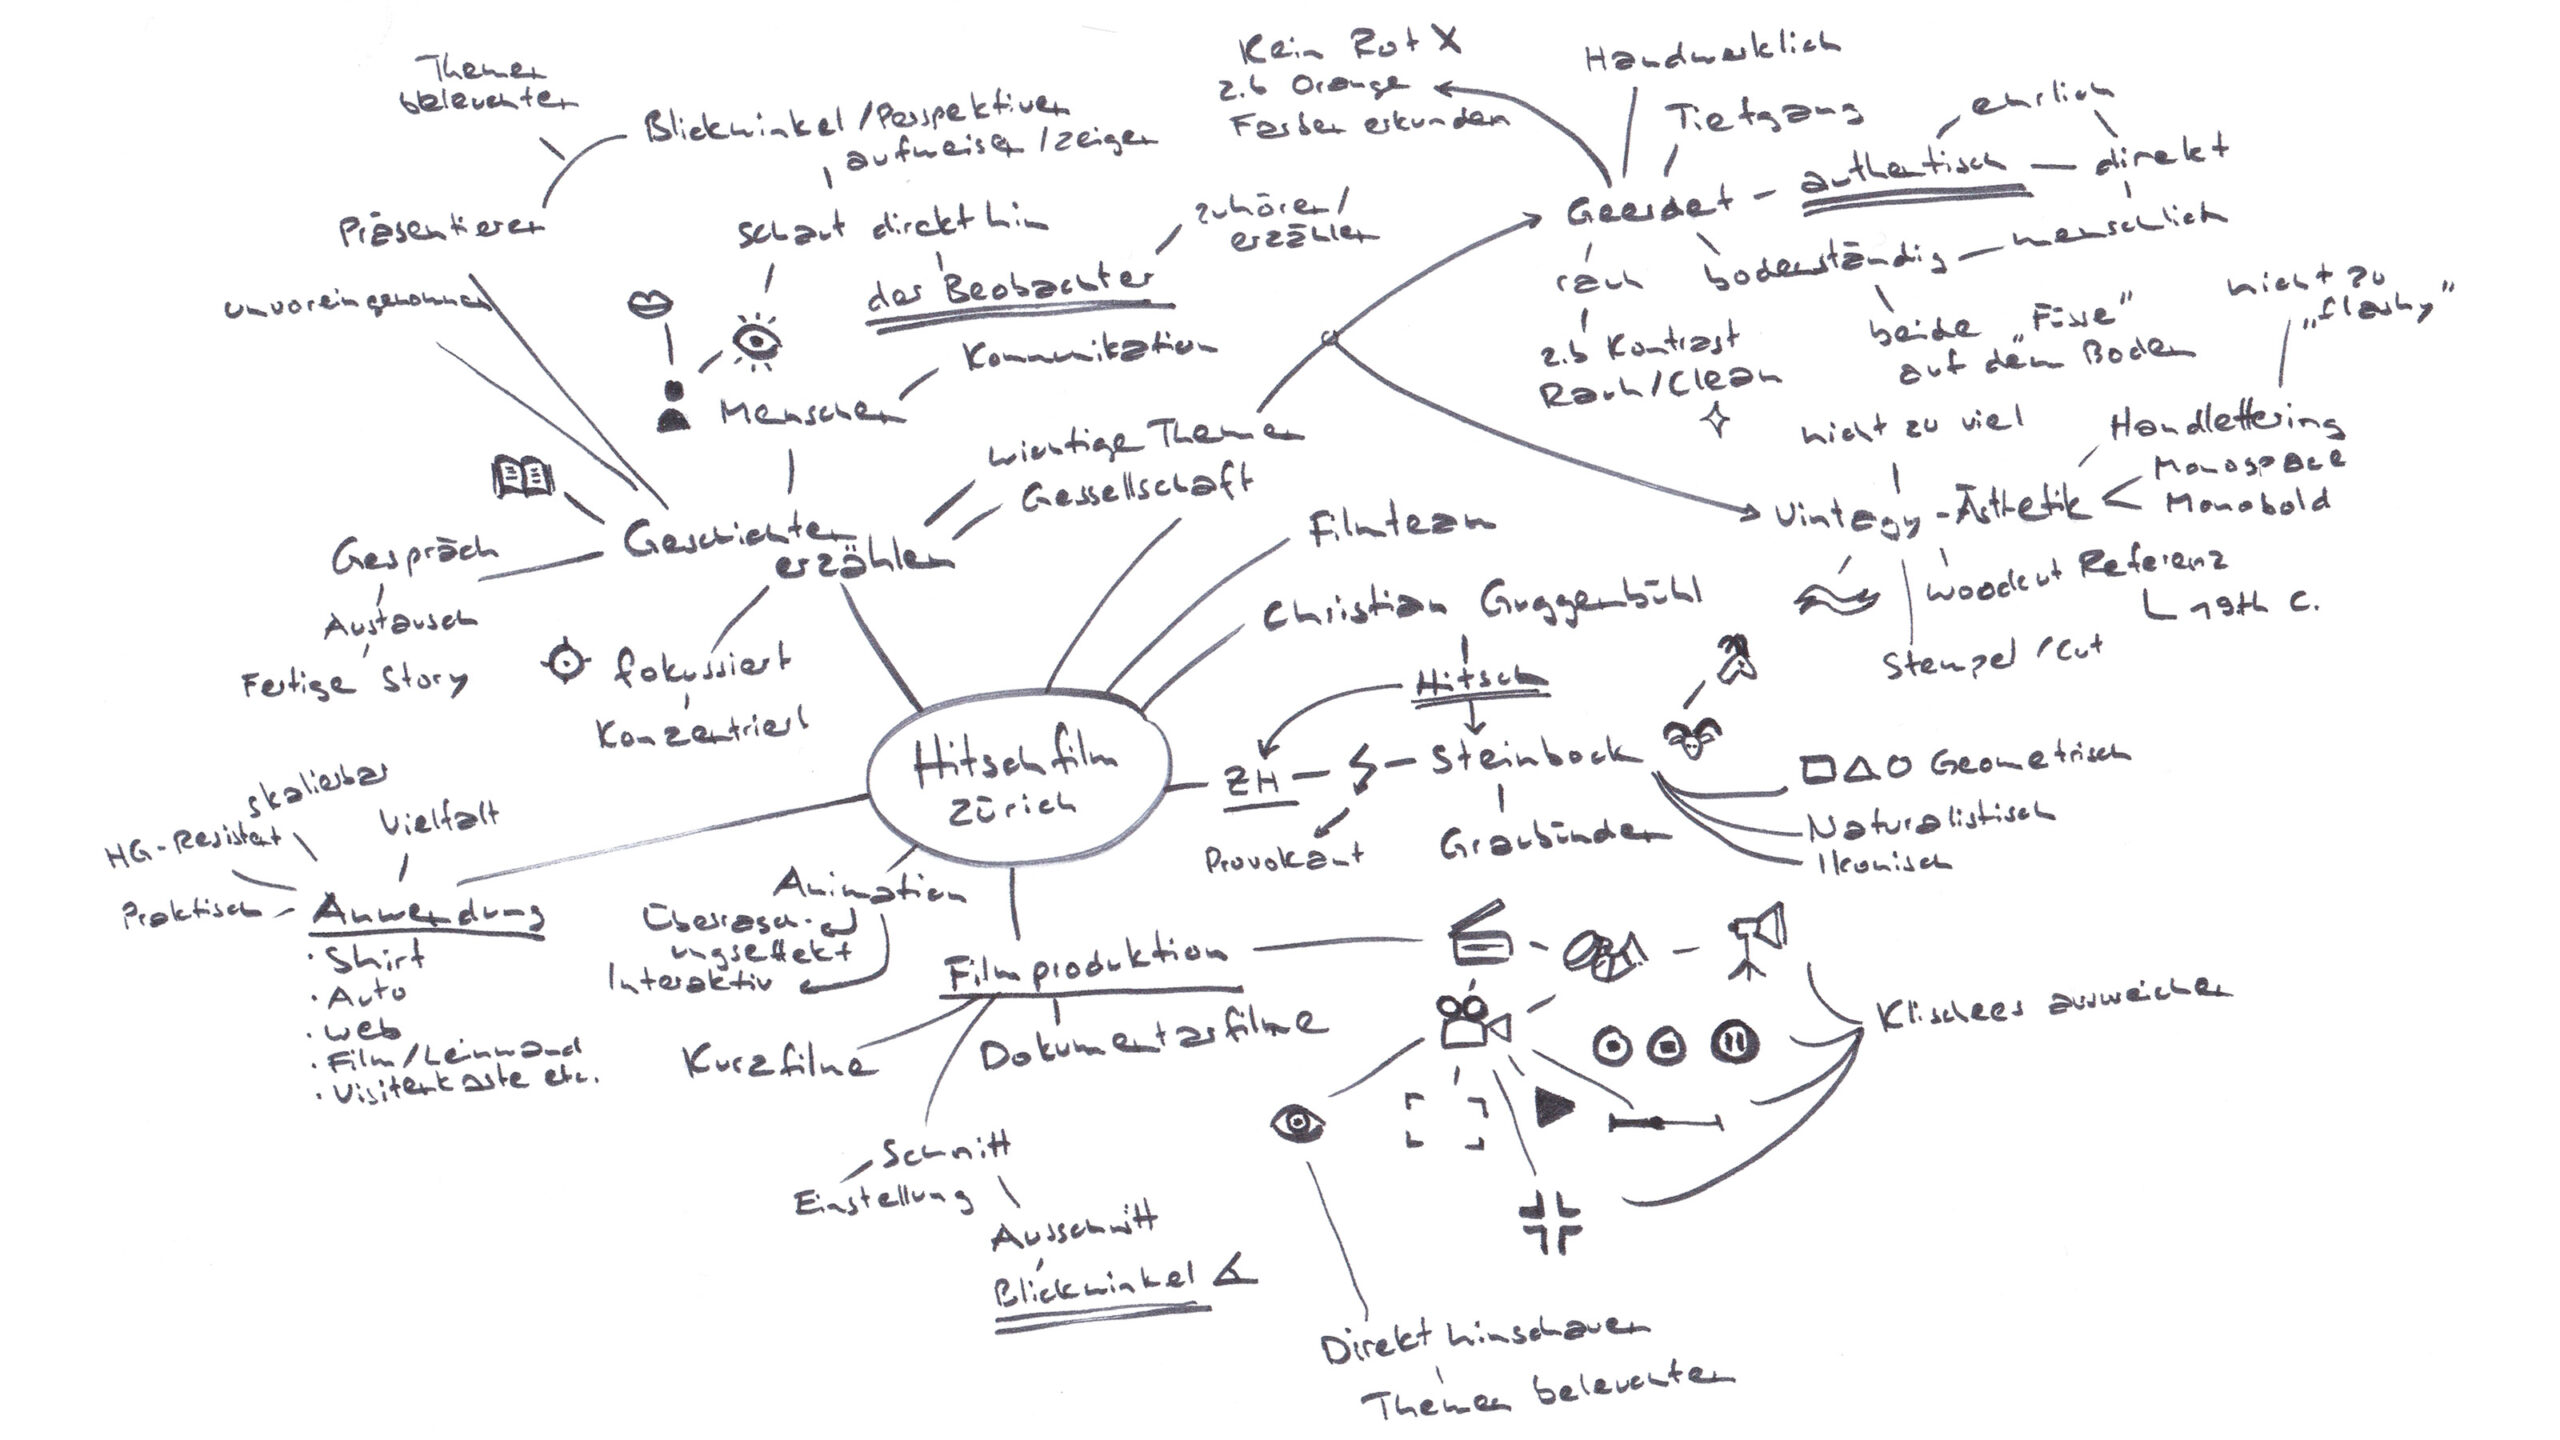 Themen
beleuchten
Blickwinkel / Perspektiven
aufweisen / zeigen
Präsentieren
unvoreingenommen
schaut direkt hin
zuhören /
erzählen
der Beobachter
Kommunikation
Menschen
wichtige Themen
Gessellschaft
Geschichten
erzählen
Gespräch
Austausch
Fertige Story
fokussiert
Konzentriert
Kein Rot X
z.b Orange
Farben erkunden
Handwerklich
Tiefgang
ehrlich
Geerdet - authentisch - direkt
rauh
bodenständig - menschlich
z.b Kontrast
Rauh / Clean
beide „Füsse"
auf dem Boden
nicht zu
„flashy"
nicht zu viel
Handlettering
Monospace
Monobold
Vintagy - Ästhetik
Woodcut Referenz
19th C.
Stempel / Cut
Filmteam
Christian Guggenbühl
Hitsch
Hitschfilm
Zürich
ZH
Steinbock
Provokant
Graubünden
Geometrisch
Naturalistisch
Ikonisch
skalierbar
HG-Resistent
Vielfalt
Praktisch
Anwendung
· Shirt
· Auto
· Web
· Film / Leinwand
· Visitenkarte etc.
Animation
Überrasch-
ungseffekt
Interaktiv
Filmproduktion
Kurzfilme
Dokumentarfilme
Schnitt
Einstellung
Ausschnitt
Blickwinkel
Klischees ausweichen
Direkt hinschauen
Themen beleuchten